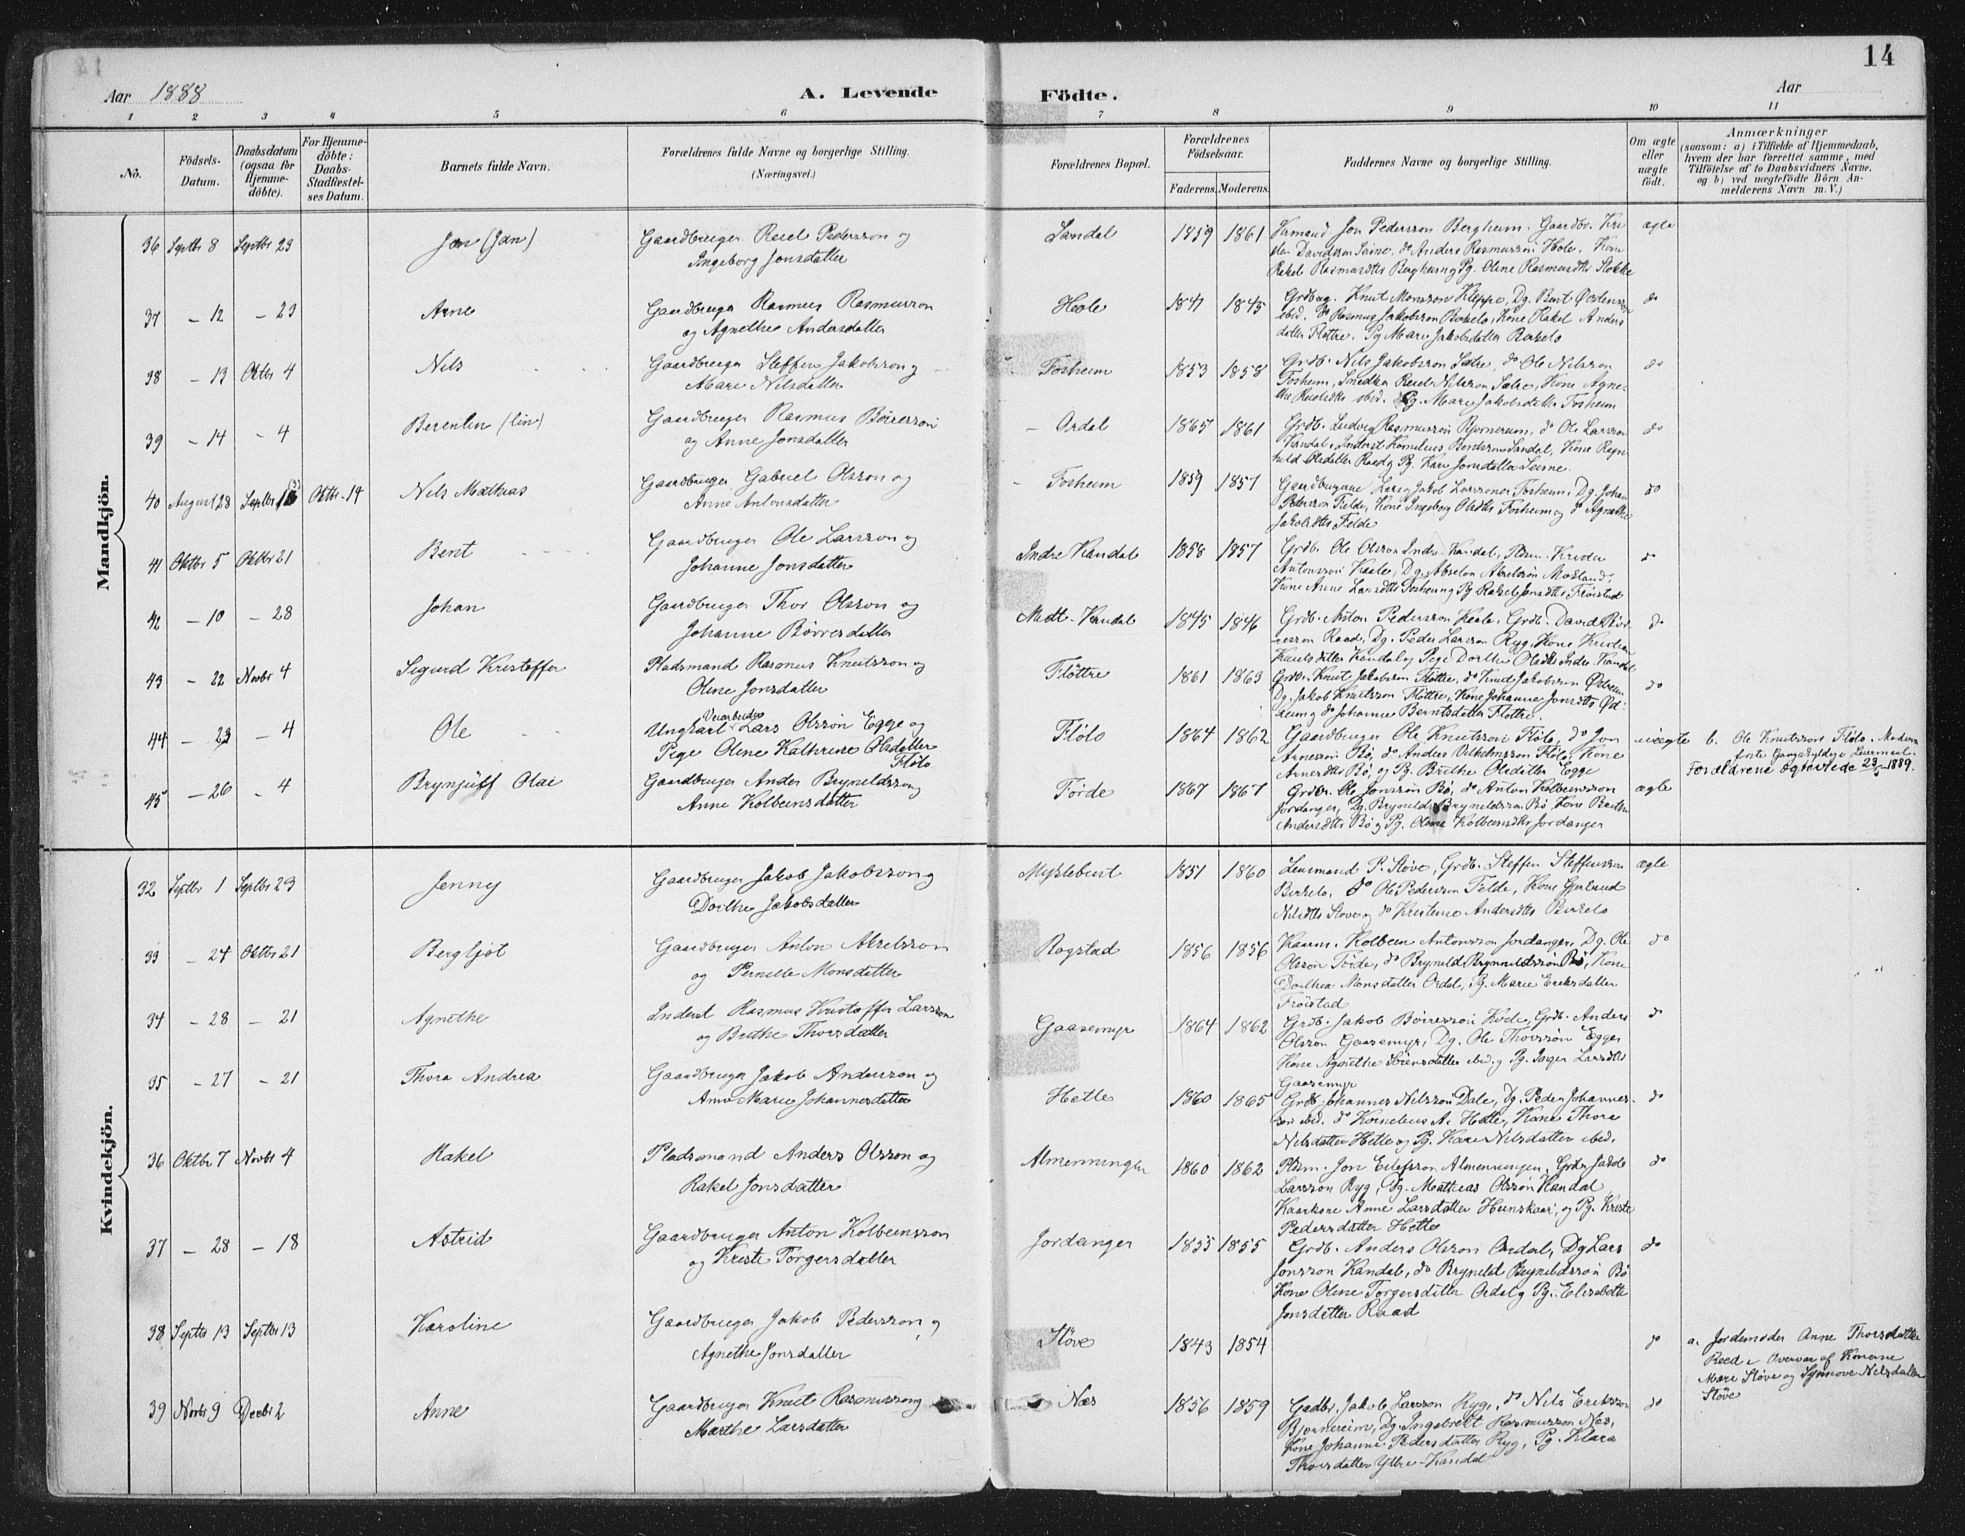 14
Aar 1888
A. Levende
Födte.
Aar
1 2 3 4 5 6 7 8 9 10 11
No.
Födsels-Datum.
Daabsdatum (ogsaa for Hjemmedöbte).
For Hjemmedöbte: Daabs-Stadfæstelses Datum.
Barnets fulde Navn.
Forældrenes fulde Navne og borgerlige Stilling. (Næringsvei.)
Forældrenes Bopæl.
Forældrenes Födselsaar.
Faderens. Moderens.
Faddernes Navne og borgerlige Stilling.
Om ægte eller uægte födt.
Anmærkninger
(saasom: a) i Tilfælde af Hjemmedaab,
hvem der har forrettet samme, med
Tilföielse af to Daabsvidners Navne,
og b) ved uægtefödte Börn An-
melderens Navn m. V.)
Mandkjön.
36 Septbr 8 Septbr 23 Jon (Jon) Gaardbruger Reiel Pedersson og
Ingeborg Jonsdatter
Sandal 1859 1861 Kaarmand Jon Pedersson Bergheim. Gaardbr. Kri-
Davidsson do Anders Rasmussøn Hole. Kone
Rakel Rasmusdtr Bergheim og Pg. Oline Rasmusdtr Stokke
ægte
37 - 12 - 23 Arne Gaardbruger Rasmus Rasmusson
og Agnethe Andersdatter
Hole 1841 1845 Grdbrg. Knut Monsson Kleppe, Dg. Bent
ibid. do Rasmus Jakobsson Birkelo, Kone Rakel Anders
datter Fløttre. Pg Mari Jakobsdatter Birkelo
do
38 - 13 Oktbr 4 Nils Gaardbruger Steffen Jakobsson og
Mari Nilsdatter
Fosheim 1853 1858 Grdb. Nils Jakobsson Sætre, do Ole Nilsson
Fosheim, Reiel Nilsson Kone Agne-
the ibid. Pg. Mari Jakobsdatter Fosheim
do
39 - 14 - 4 Berentin (tin) Gaardbruger Rasmus Börresson
og Anne Jonsdatter
Ordal 1865 1861 Grdb. Ludvig Rasmusson Bjørnereim, do Ole Larsson
Kandal, Inderst Kornelius Sandal, Kone Ragn-
hild Olsdatter Raad og Pg. Kari Jonsdatter
do
40 August 28 Septbr 16 Oktbr. 14 Nils Mathias Gaardbruger Gabriel Olsson og
Anne Antonsdatter
Fosheim 1859 1857 Gaardbrugerne Lars og Jakob Larssønner Fosheim, Dg. Johan
Pedersson Felde, Kone Ingeborg Olsdtr Fosheim og do Agnethe
Jakobsdtr Felde
do
41 Oktbr 5 Oktbr 21 Bent Gaardbruger Ole Larsson og
Johanne Jonsdatter
Indre Kandal 1858 1857 Grdb. Ole Olsson Indre Kandal, Kristen
Antonsson Dg. Abselon Akselsøn
Kone Anne Larsdtr Fosheim og Pg Rakel Jonsdtr Frøistad
do
42 - 10 - 28 Johan Gaardbruger Thor Olsson og
Johanne Børresdatter
Medt-Kandal 1845 1846 Grdb. Anton Pedersson Grdb. David Bør-
resson Raad, Dg. Peder Larsson Ryg, Kone Kristian
Knutsdatter Kandal og Pige Dorthe Olsdtr Indre-Kandal
do
43 - 22 Novbr 4 Sigurd Kristoffer Pladsmand Rasmus Knutsson og
Oline Jonsdatter
Fløttre 1861 1863 Grdb. Knut Jakobsson Fløttre, do Knut Jakobsson
Dg. Jakob Knutsson Fløttre, Kone Johanne Jonsdtr
og do Johanne Berntsdatter Fløttre.
do
44 - 23 - 4 Ole Ungkarl Lars Olssøn Egge og
Pige Oline Kathrine Olsdatter
Fløto
Fløto 1864 1862 Gaardbruger Ole Knutsson Fløto, do Jon
Arnesøn Bø, do Anders Vilhelmsson Fløto, Kone
Arnesdtr Bø, og Pg. Brithe Olsdatter Egge
uægte b. Ole Knutsson Fløto. Moderens
første Gangs Leiermaal.
Forældrene ægteviede 23/5-1889.
45 - 26 - 4 Brynjulf Olai Gaardbruger Anders Bryneldsson og
Anne Kolbeinsdatter
Førde 1867 1867 Grdbr. Ole Jonsson Bø, do Anton Kolbeinsson
Jordanger, Dg. Bryneld Bryneldsson Bø, Kone
Andersdtr Bø og Pg. Oline Kolbeinsdtr Jordanger
ægte
Kvindekjön.
32 Septbr 1 Septbr 23 Jenny Gaardbruger Jakob Jakobsson og
Dorthe Jakobsdatter
Myklebust 1851 1860 Lensmand P. Støve, Grdb. Steffen Steffensson
Birkelo, do Ole Pedersson Felde, Kone Gjertrud
Nilsdtr Støve og do Kristine Andersdtr Birkelo
ægte
33 - 24 Oktbr 21 Bergljot Gaardbruger Anton Akselsson
og Pernelle Monsdatter
Rogstad 1856 1856 Kaarm. Kolbein Antonsson Jordanger, Dg. Ole
Olsson Førde, do Bryneld Bryneldssøn Bø, Kone
Dorthea Monsdatter Ordal, Pg. Marie Eriksdatter
Frøistad
do
34 - 28 - 21 Agnethe Inderst Rasmus Kristoffer Larsson
og Brithe Thorsdatter
Gaasemyr 1864 1862 Grdb. Jakob Børressøn Grdb. Anders
Olsson Gaasemyr, Dg. Ole Thorssøn Egge,
Kone Agnethe Sørensdatter ibid. og Pg. Inger Larsdtr
Gaasemyr
do
35 - 27 - 21 Thora Andrea Gaardbruger Jakob Andersson og
Anne Marie Johannesdatter
Hetle 1860 1865 Grdb. Johannes Nilsson Dale, Dg. Peder Johannes-
son ibid. do Kornelius A. Hetle, Kone Thora
Nilsdatter Hetle og Pg. Kari Nilsdatter ibid.
do
36 Oktbr 7 Novbr 4 Rakel Pladsmand Anders Olsson og
Rakel Jonsdatter
Almenningen 1860 1862 Pldsm. Jon Eilefsson Almenningen, Grdb. Jakob
Larsson Ryg, Dg. Mathias Olssøn Kandal
Kaarkone Anne Larsdatter Hunskaar, og Pg. Kriste
Pedersdatter Hetle
do
37 - 28 - 18 Astrid Gaardbruger Anton Kolbeinsson
og Kristi Torgersdatter
Jordanger 1855 1855 Grdb. Anders Olsson Ordal, Dg Lars
Jonsson Kandal, do Bryneld Bryneldssøn Bø
Kone Oline Torgersdatter Ordal og Pg. Elisabeth
Jonsdatter Raad
do
38 Septbr 13 Septbr 13 Karoline Gaardbruger Jakob Pedersson og
Agnethe Jonsdatter
Støve 1843 1854
do a. Jordemoder Anne Thorsdatter
Reed i Overvær af Konerne
Mari Støve og Synnøve Nilsdatter
Støve
39 Novbr 9 Decbr 2 Anne Gaardbruger Knut Rasmusson og
Marthe Larsdatter
Næs 1856 1859 Gadbr. Jakob Larsson Ryg, do Nils Eriksson
Bjørnereim, Dg. Ingebrett Rasmusson Næs,
Kone Johanne Pedersdatter Ryg, Pg. Klara
Thorsdatter Ytre-Kandal
do